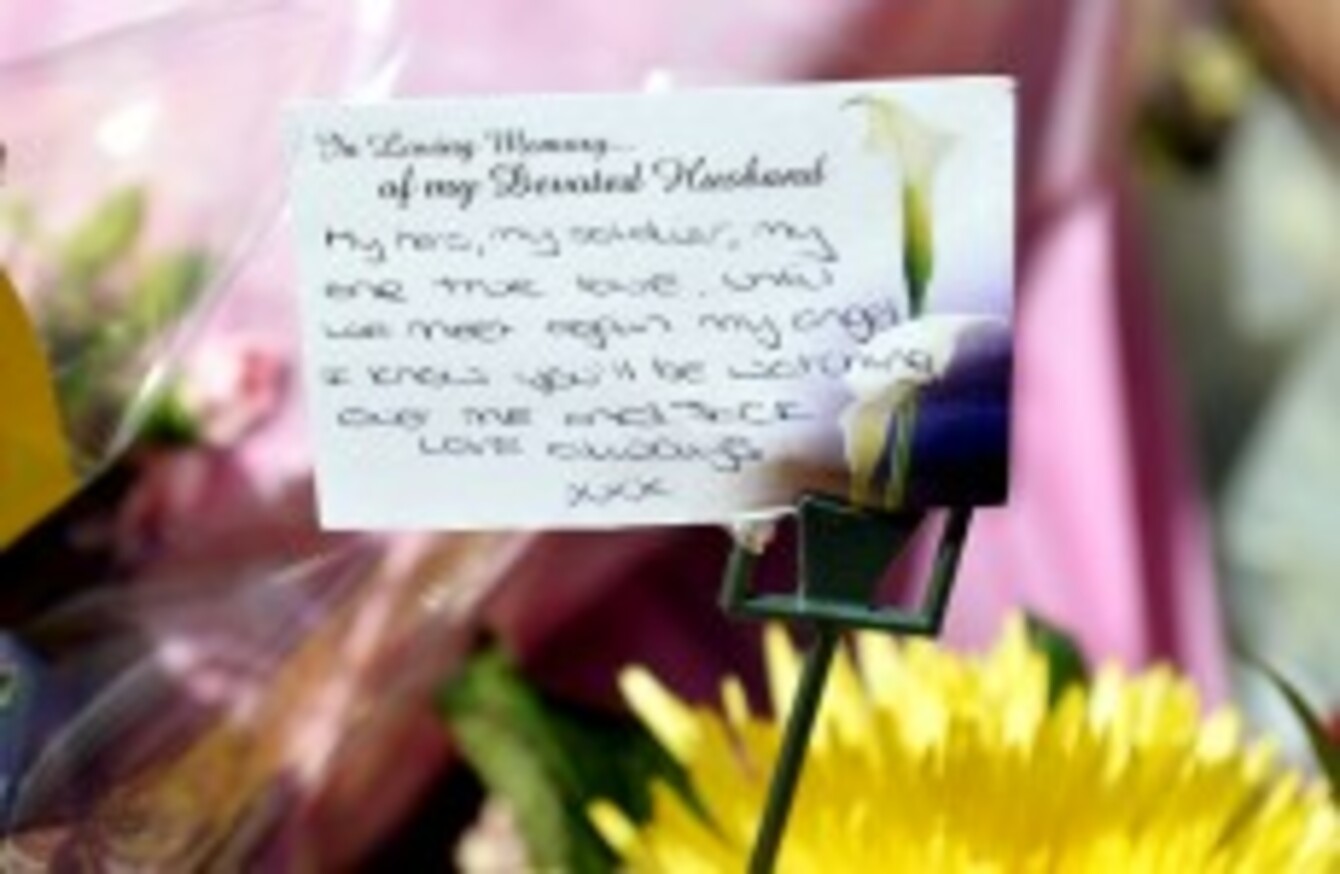 In Loving Memory...
of my Devoted Husband
My hero, my soldier, my
one true love. Until
we meet again my angel
I know you'll be watching
over me and Jack
Love always
xxx